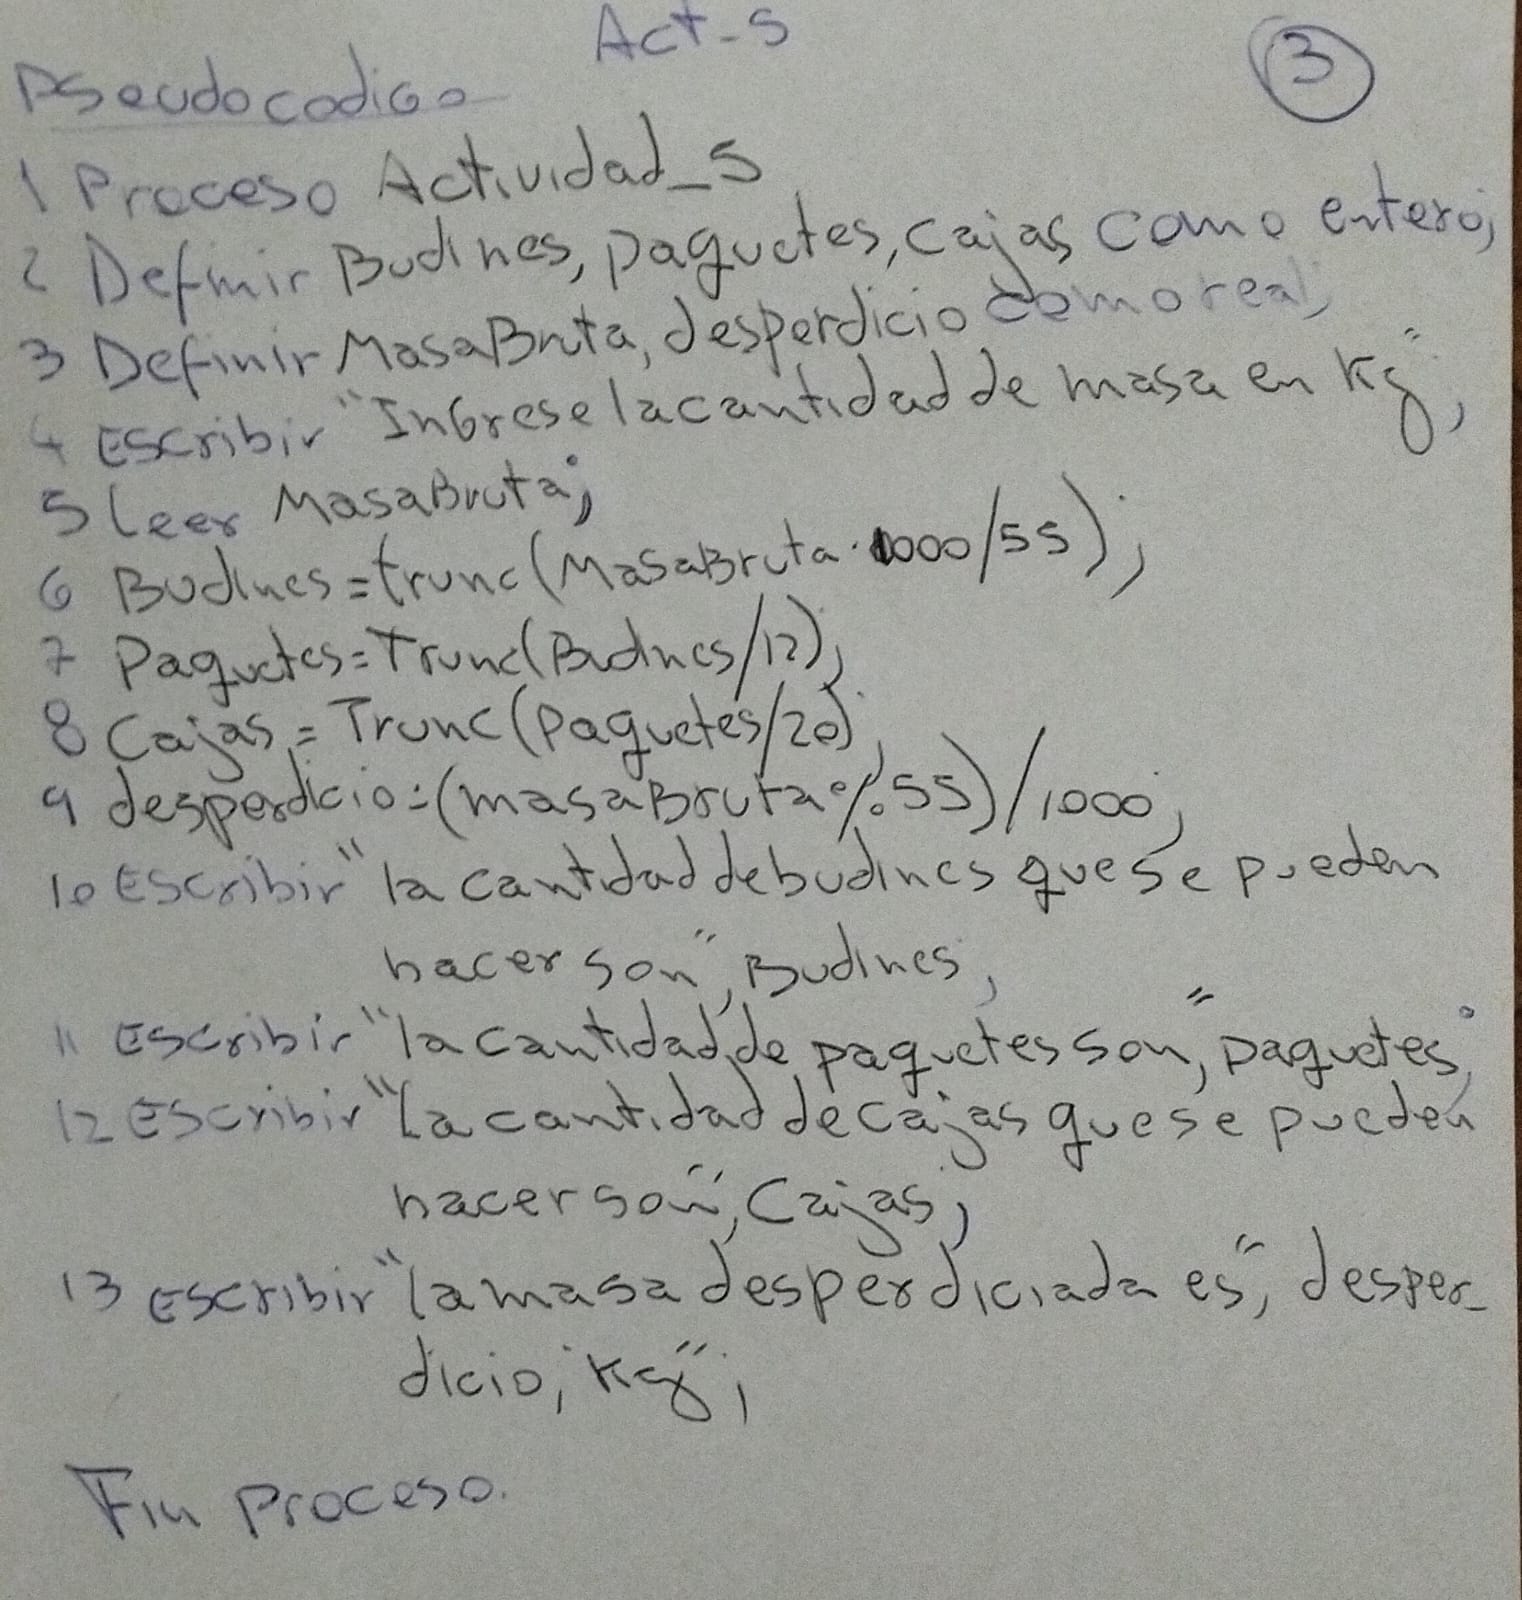 Act-5
3
Pseudocodigo
1 Proceso Actividad_5
2 Definir Budines, paquetes, cajas como entero;
3 Definir MasaBruta, desperdicio como real;
4 Escribir "Ingrese la cantidad de masa en Kg";
5 leer MasaBruta;
6 Budines = trunc(MasaBruta · 1000/55);
7 Paquetes = Trunc(Budines/12);
8 Cajas = Trunc(paquetes/20);
9 desperdicio = (masaBruta % 55)/1000;
10 Escribir "la cantidad de budines que se pueden
hacer son", Budines;
11 Escribir "la cantidad de paquetes son", paquetes;
12 Escribir "la cantidad de cajas que se pueden
hacer son", Cajas;
13 Escribir "la masa desperdiciada es", desper-
dicio, "Kg";
Fin Proceso.